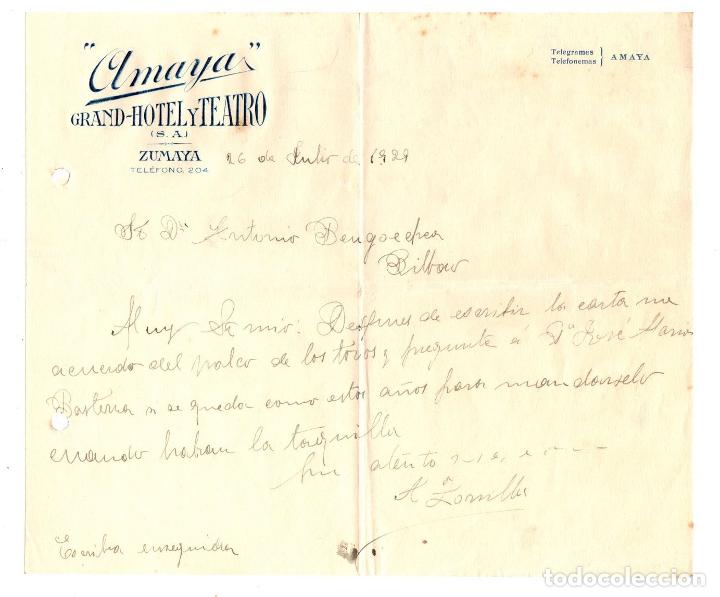 "Amaya"
GRAND-HOTEL Y TEATRO
(S.A.)
ZUMAYA
TELÉFONO, 204
Telegramas
Telefonemas } AMAYA
26 de Julio de 1929
Sr Dn Antonio Bengoechea
Bilbao
Muy Sr mio: Despues de escribir la carta me
acuerdo del palco de los toros y pregunte á Dn José Maria
Basterra si se queda como estos años para mandarselo
cuando habran la taquilla
su atento
Zorrilla
Escriba enseguida
todocoleccion.net